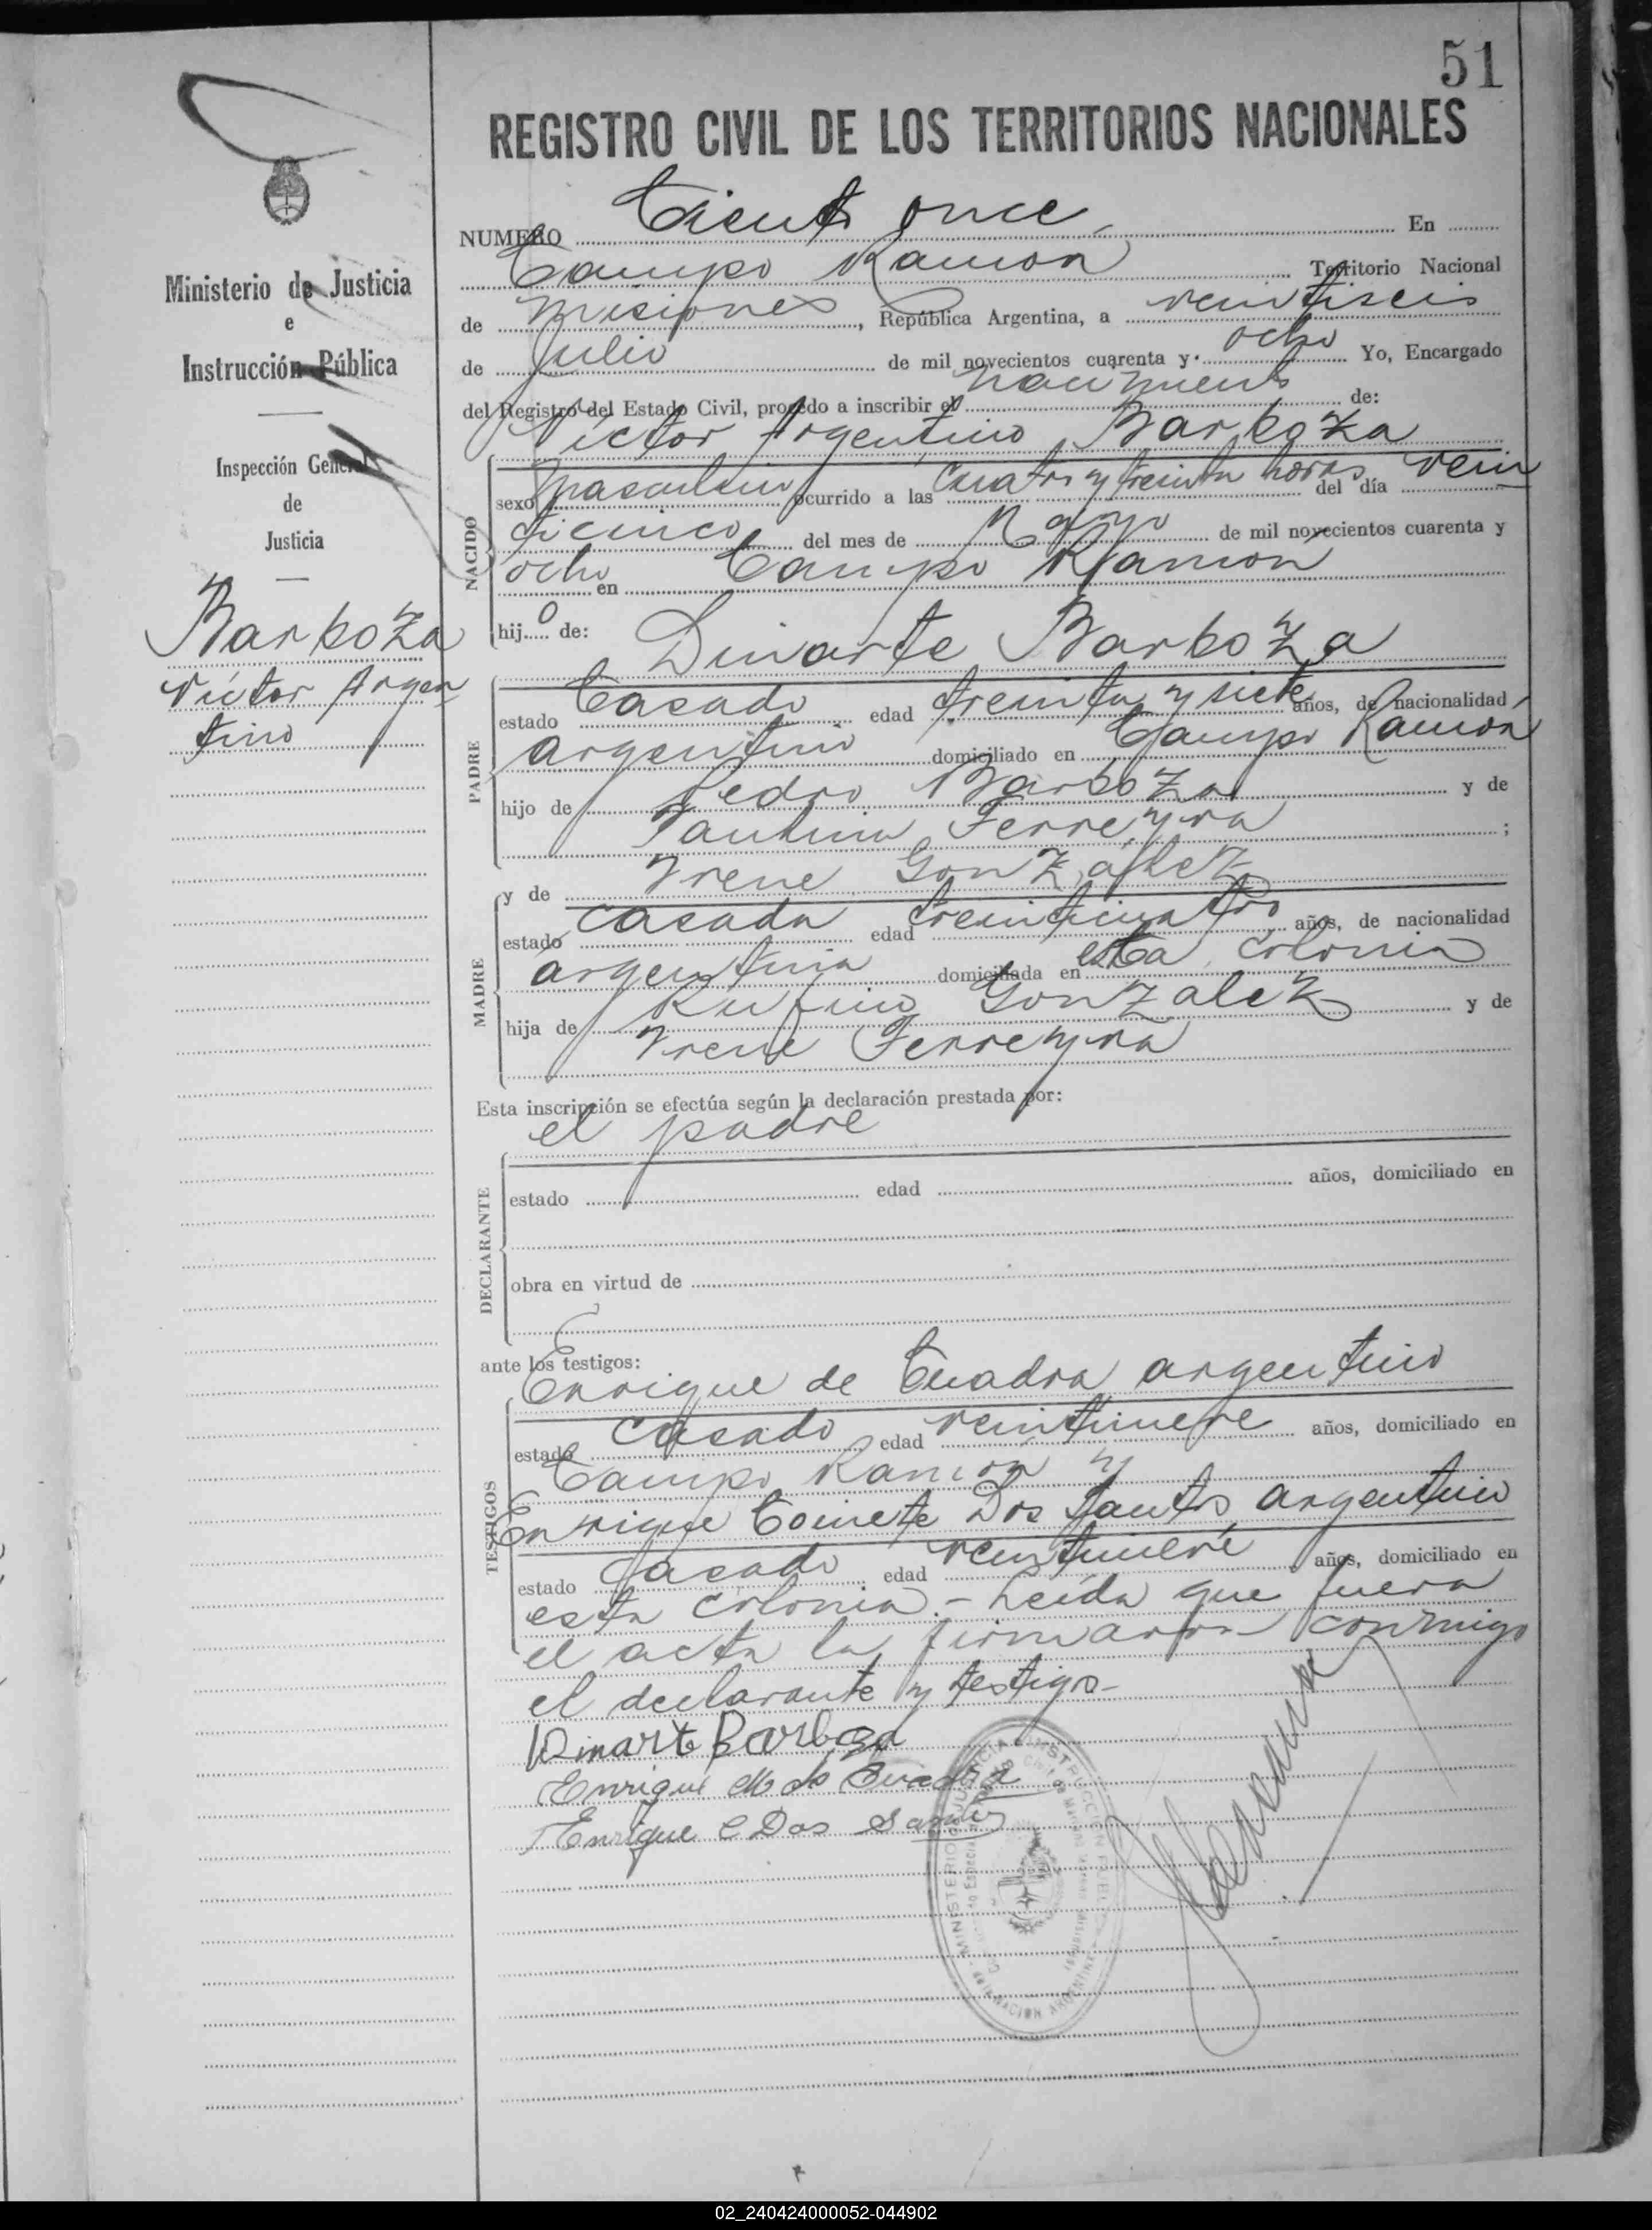 51
REGISTRO CIVIL DE LOS TERRITORIOS NACIONALES
Ministerio de Justicia
e
Instrucción Pública
Inspección General
de
Justicia
Barboza
Víctor Argen
tino
NUMERO Ciento once En
Campo Ramón Territorio Nacional
de Misiones, República Argentina, a veintiseis
de Julio de mil novecientos cuarenta y ocho Yo, Encargado
del Registro del Estado Civil, procedo a inscribir el nacimiento de:
Víctor Argentino Barboza
NACIDO
sexo masculino ocurrido a las cuatro y treinta horas del día vein
ticinco del mes de Mayo de mil novecientos cuarenta y
ocho en Campo Ramón
hijo de: Dinarte Barboza
PADRE
estado Casado edad treinta y siete años, de nacionalidad
argentino domiciliado en Campo Ramón
hijo de Pedro Barboza y de
Ferreyra;
y de Irene González
MADRE
estado casada edad treinticuatro años, de nacionalidad
argentina domiciliada en esta colonia
hija de Rufino Gonzalez y de
Irene Ferreyra
Esta inscripción se efectúa según la declaración prestada por:
el padre
DECLARANTE
estado edad años, domiciliado en
obra en virtud de
ante los testigos:
Enrique de Cuadra argentino
TESTIGOS
estado casado edad veintinueve años, domiciliado en
Campo Ramón y
Enrique Dos Santos argentino
estado casado edad veintinueve años, domiciliado en
esta colonia.- Leída que fuera
el acta la firmaron conmigo
el declarante y testigos-
Dinarte Barboza
Enrique M de Cuadra
Enrique C Dos Santos
MINISTERIO DE JUSTICIA E INSTRUCCION PUBLICA
NACION ARGENTINA
02_240424000052-044902